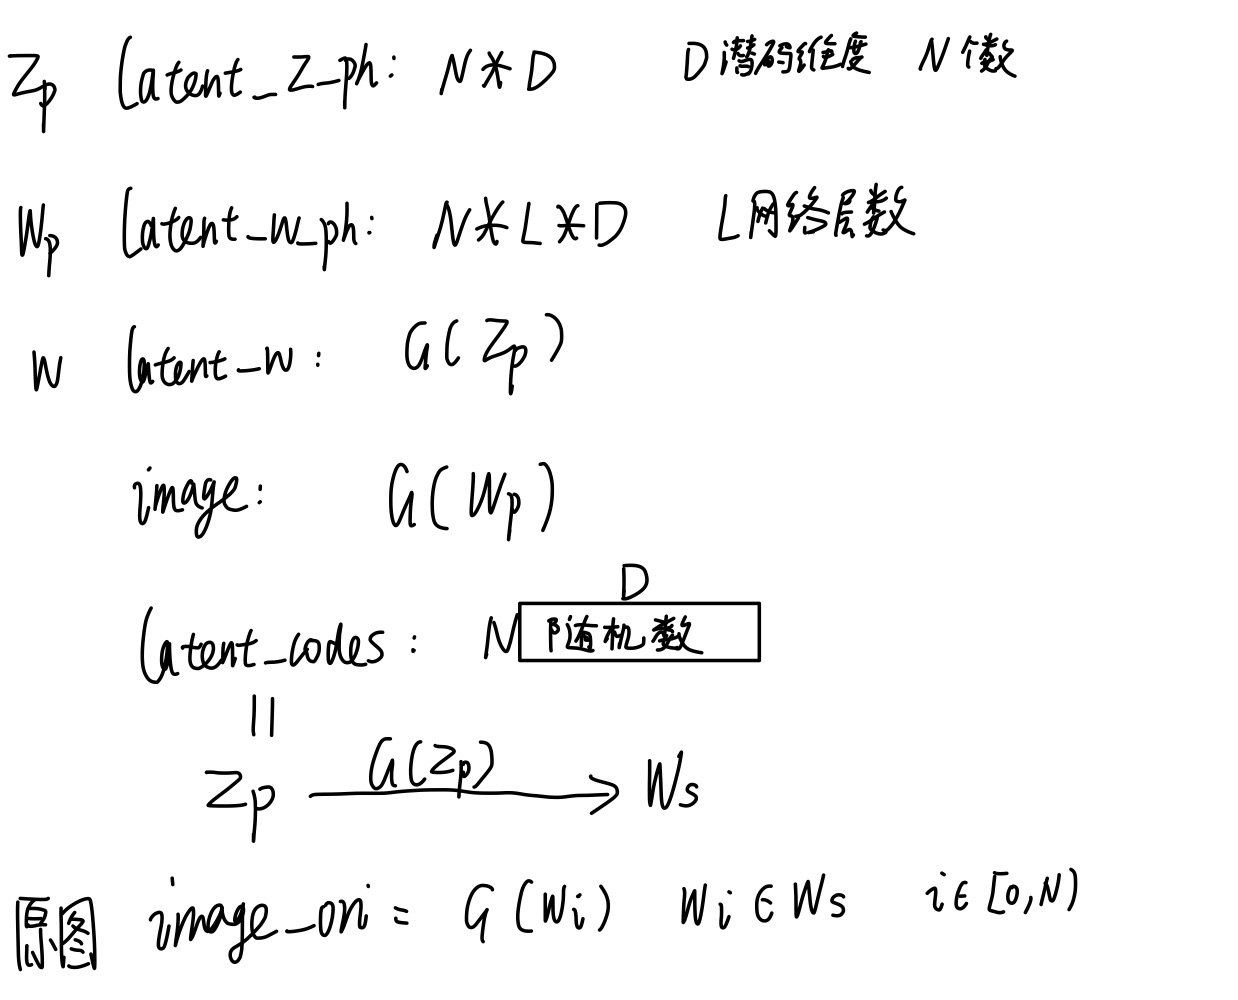 Zp latent_z_ph: N*D D潜码维度 N个数
Wp latent_w_ph: N*L*D L网络层数
W latent_w: G(Zp)
image: G(Wp)
D
latent_codes: N 随机数
||
Zp G(Zp) → Ws
原图 image_ori = G(Wi) Wi∈Ws i∈[0,N)